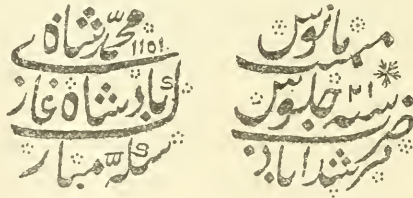 محمد شاه
۱۱۵۱
بادشاه غازی
سکه مبارک
مانوس
میمنت
سنه ۲۱ جلوس
ضرب
مرشداباد